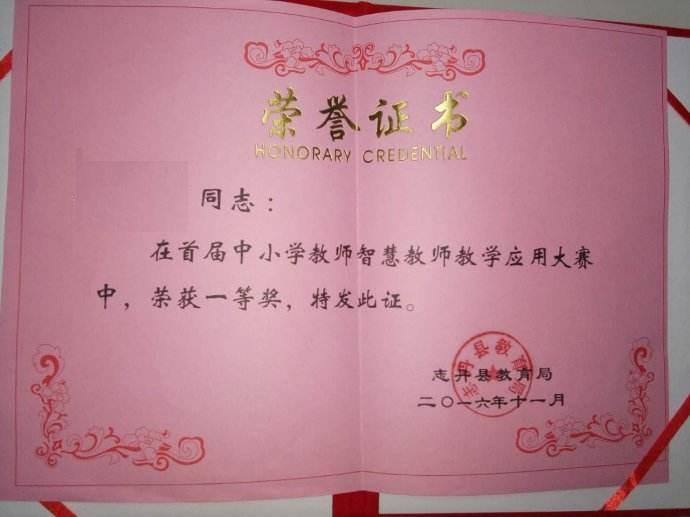 荣誉证书
HONORARY CREDENTIAL
同志：
在首届中小学教师智慧教师教学应用大赛
中，荣获一等奖，特发此证。
志丹县教育局
志丹县教育局
二〇一六年十一月